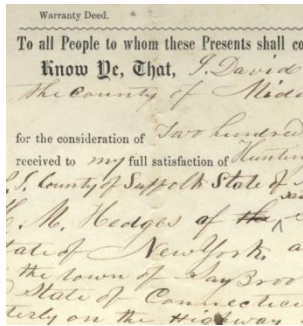 Warranty Deed.
To all People to whom these Presents shall co
Know Ye, That, I, David
the County of Midd
for the consideration of Two hundred
received to my full satisfaction of Hunting
County of Suffolk State of
H. M. Hedges of the
tate of New York, a
the town of Saybroo
State of Connectic
terly on the Highway